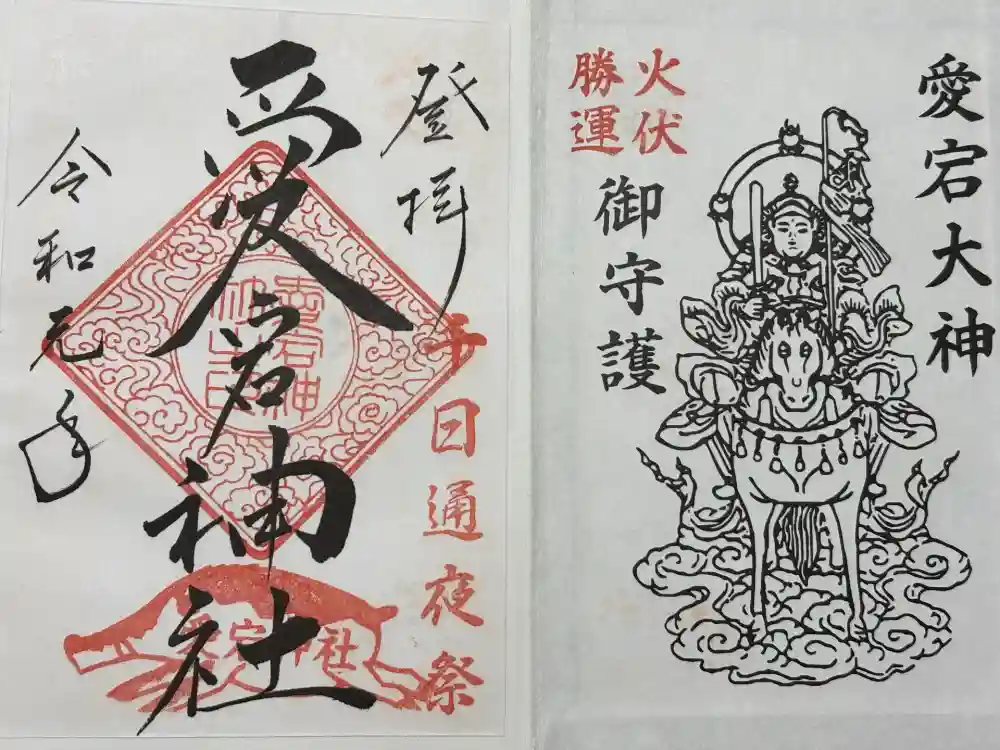 愛宕大神
火伏
勝運
御守護
登拝
千日通夜祭
愛宕神社
愛宕神社
令和元年